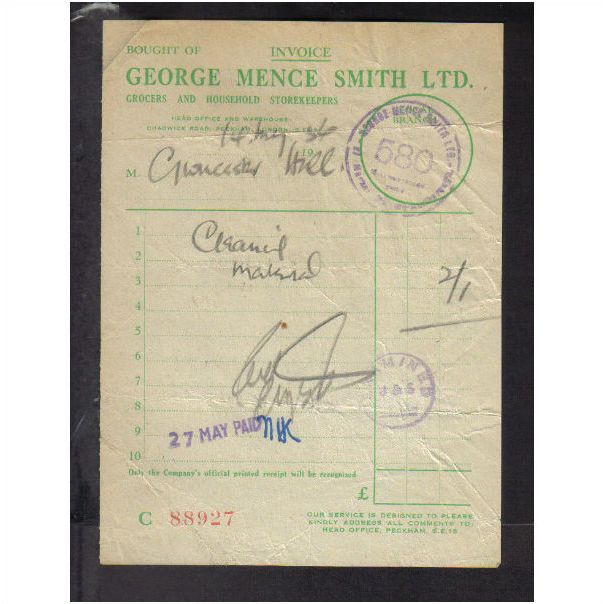 BOUGHT OF INVOICE
GEORGE MENCE SMITH LTD.
GROCERS AND HOUSEHOLD STOREKEEPERS
BRANCH
HEAD OFFICE AND WAREHOUSE
CHADWICK ROAD, PECKHAM, LONDON
GEORGE MENCE SMITH LTD.
580
19
M. Gloucester Hill
1
2
3
4
5
6
7
8
9
10
Cleaning
material
2/1
27 MAY PAID
Only the Company's official printed receipt will be recognised
£
C 88927
OUR SERVICE IS DESIGNED TO PLEASE
KINDLY ADDRESS ALL COMMENTS TO:
HEAD OFFICE, PECKHAM, S.E.15